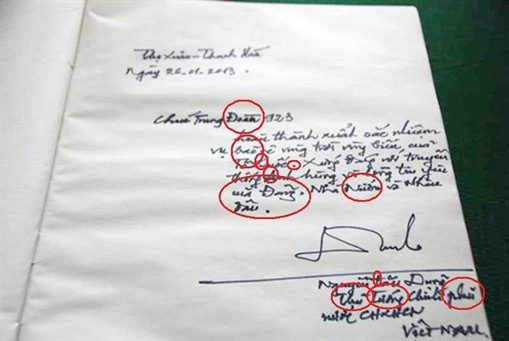 Thọ Xuân - Thanh Hóa
Ngày 26.01.2013.
Chúc Trung Đoàn 923
hoàn thành xuất sắc nhiệm
vụ bảo vệ vùng trời vùng biển của
Tổ quốc. Xứng đáng với truyền
thống anh hùng và lòng tin yêu
của Đảng, Nhà Nước và Nhân
dân.
Nguyễn Tấn Dũng
Thủ Tướng Chính phủ
nước CHXHCN
Việt Nam